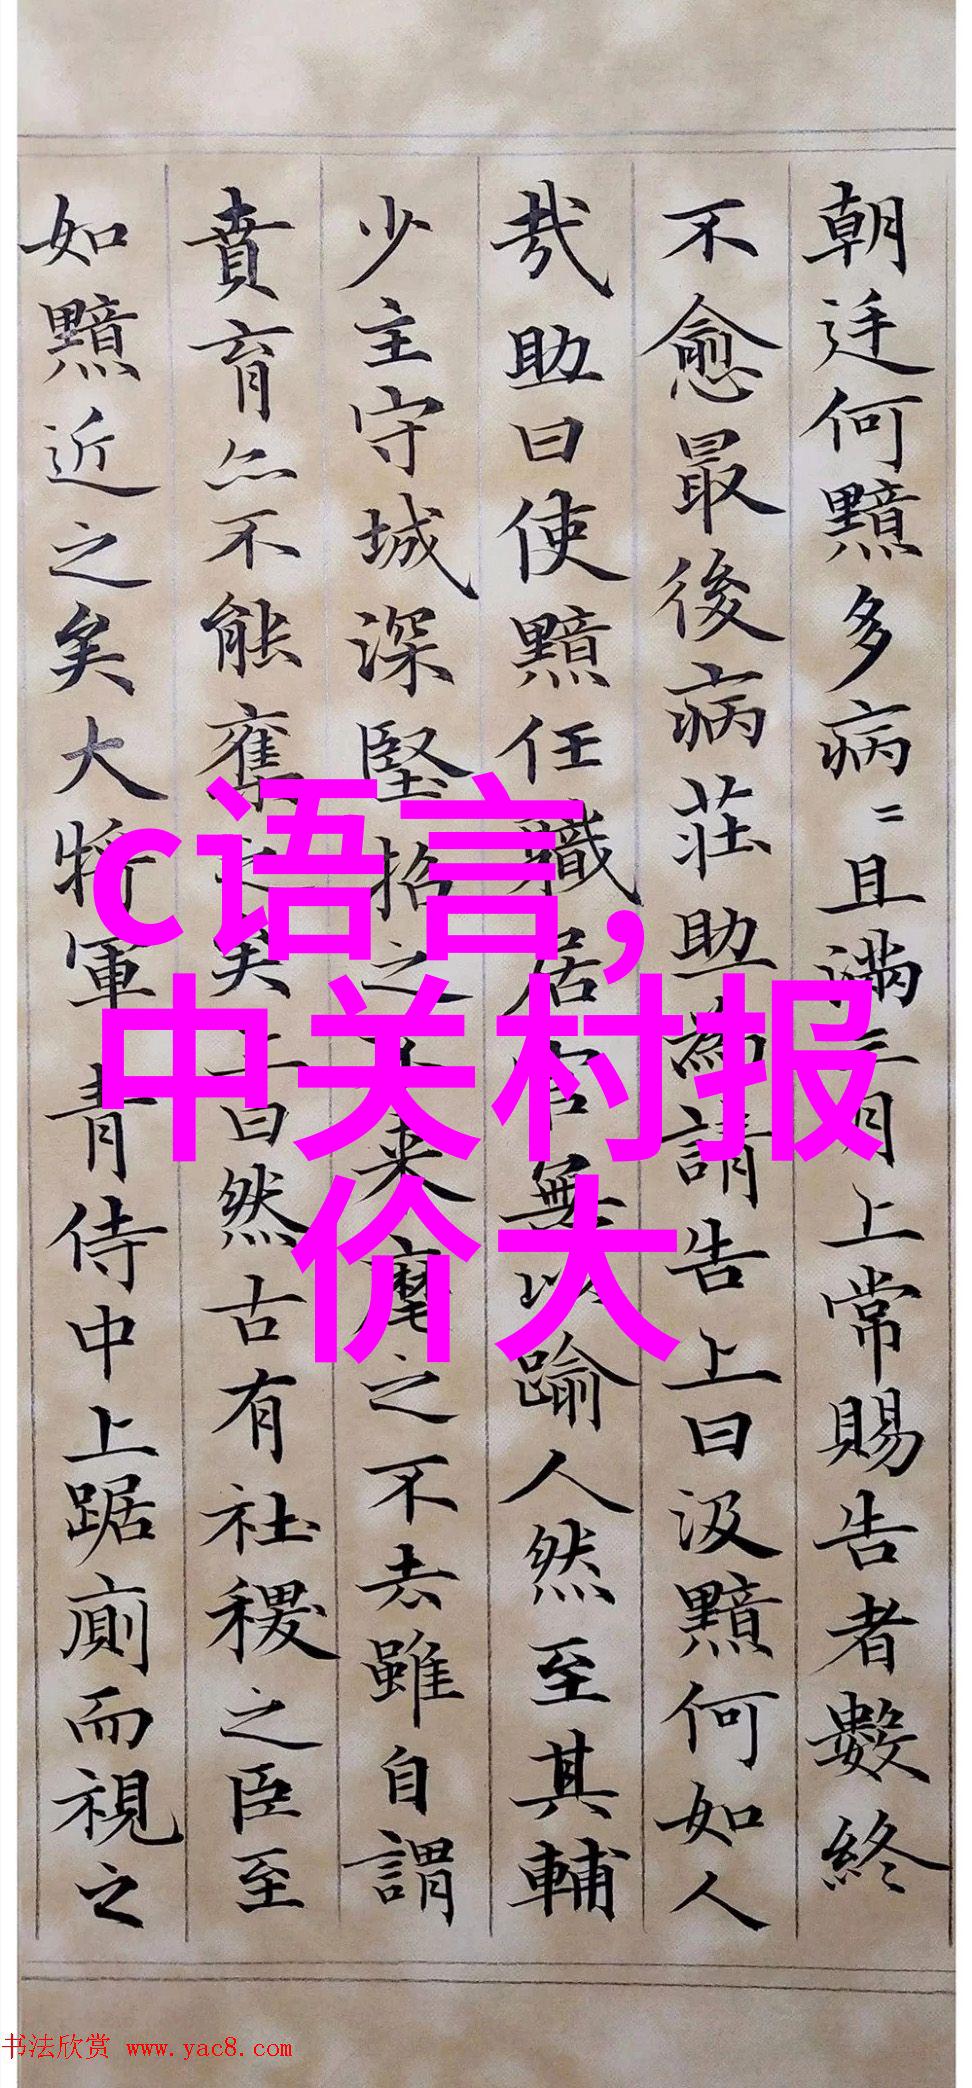 朝廷何黯多病〻且滿三月上常賜告者數終
不愈最後病莊助為請告上曰汲黯何如人
哉助曰使黯任職居官無以踰人然至其輔
少主守城深堅招之不來麾之不去雖自謂
賁育亦不能奪之矣上曰然古有社稷之臣至
如黯近之矣大將軍青侍中上踞廁而視之
c语言,
中关村报
价大
书法欣赏 www.yac8.com